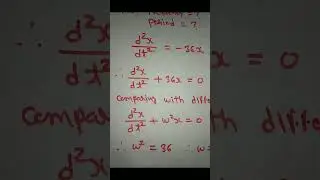 Period = ?
d²x/dt² = -36x
∴ d²x/dt² + 36x = 0
Comparing with
d²x/dt² + ω²x = 0
∴ ω² = 36 ∴ ω